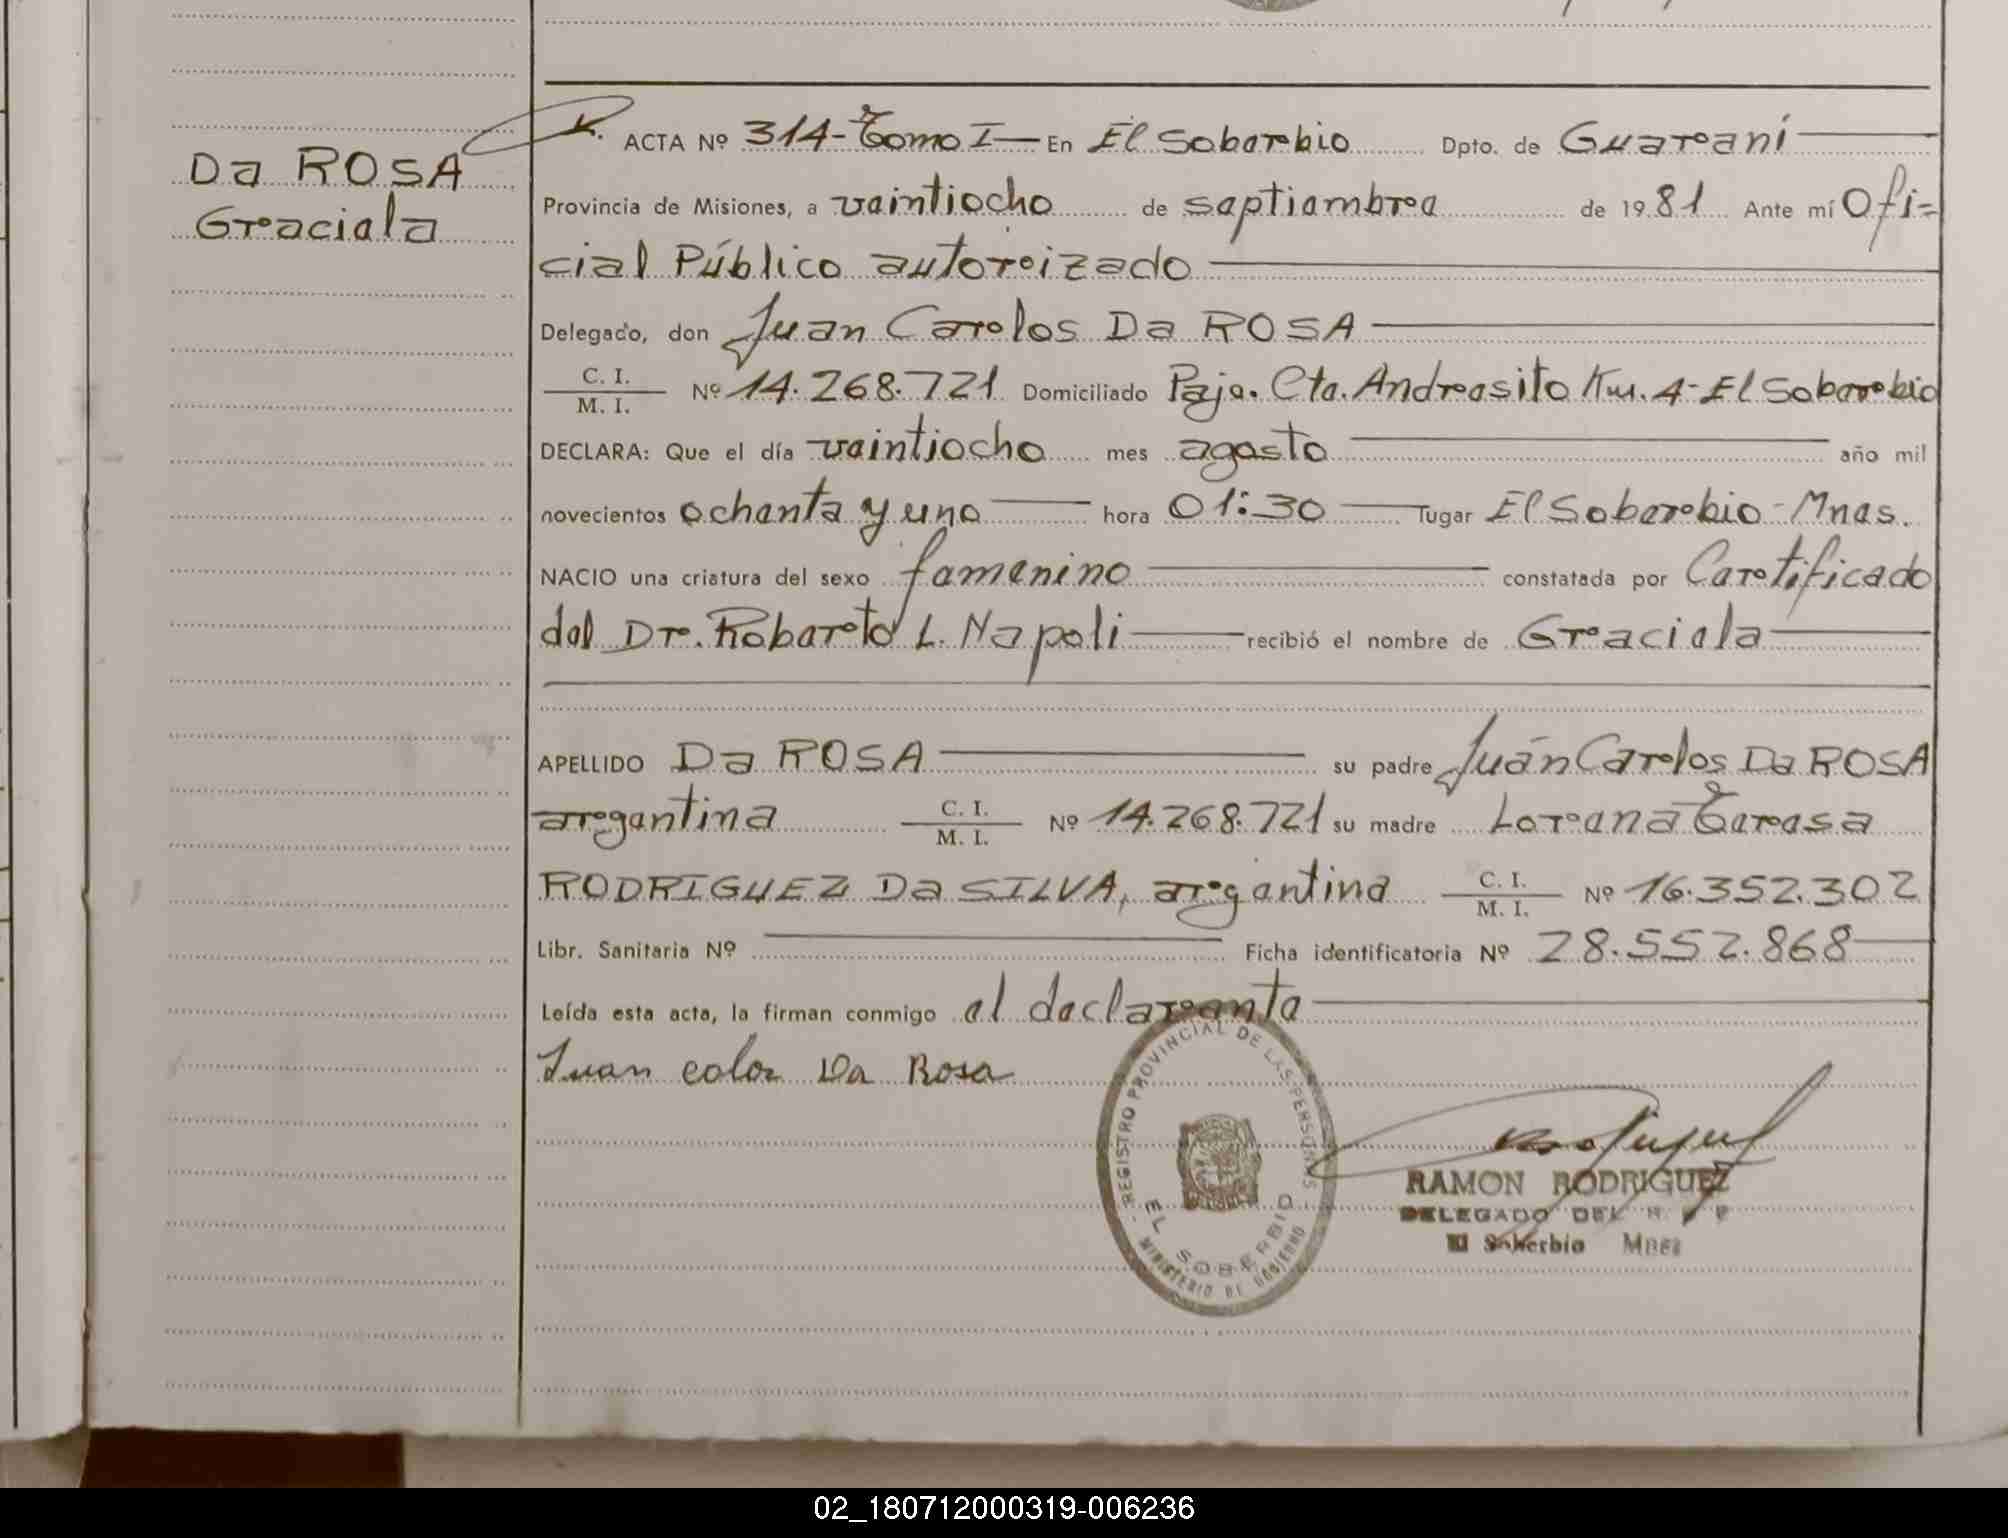 Da ROSA
Graciela
ACTA Nº 314-Tomo I En El Soberbio Dpto. de Guaraní
Provincia de Misiones, a veintiocho de septiembre de 1981 Ante mí Ofi=
cial Público autorizado
Delegado, don Juan Carlos Da ROSA
C. I.
M. I. Nº 14.268.721 Domiciliado Paje. Cta. Andresito Km. 4-El Soberbio
DECLARA: Que el día veintiocho mes agosto año mil
novecientos ochenta y uno hora 01:30 lugar El Soberbio-Mnes.
NACIO una criatura del sexo femenino constatada por Certificado
del Dr. Roberto L. Napoli recibió el nombre de Graciela
APELLIDO Da ROSA su padre Juán Carlos Da ROSA
argentina C. I.
M. I. Nº 14.268.721 su madre Lorena Teresa
RODRIGUEZ Da SILVA, argentina C. I.
M. I. Nº 16.352.302
Libr. Sanitaria Nº Ficha identificatoria Nº 28.552.868
Leída esta acta, la firman conmigo el declarante
Juan colos Da Rosa
REGISTRO PROVINCIAL DE LAS PERSONAS
EL SOBERBIO
MINISTERIO DE GOBIERNO
RAMON RODRIGUEZ
DELEGADO DEL R P P
El Soberbio Mnes
02_180712000319-006236